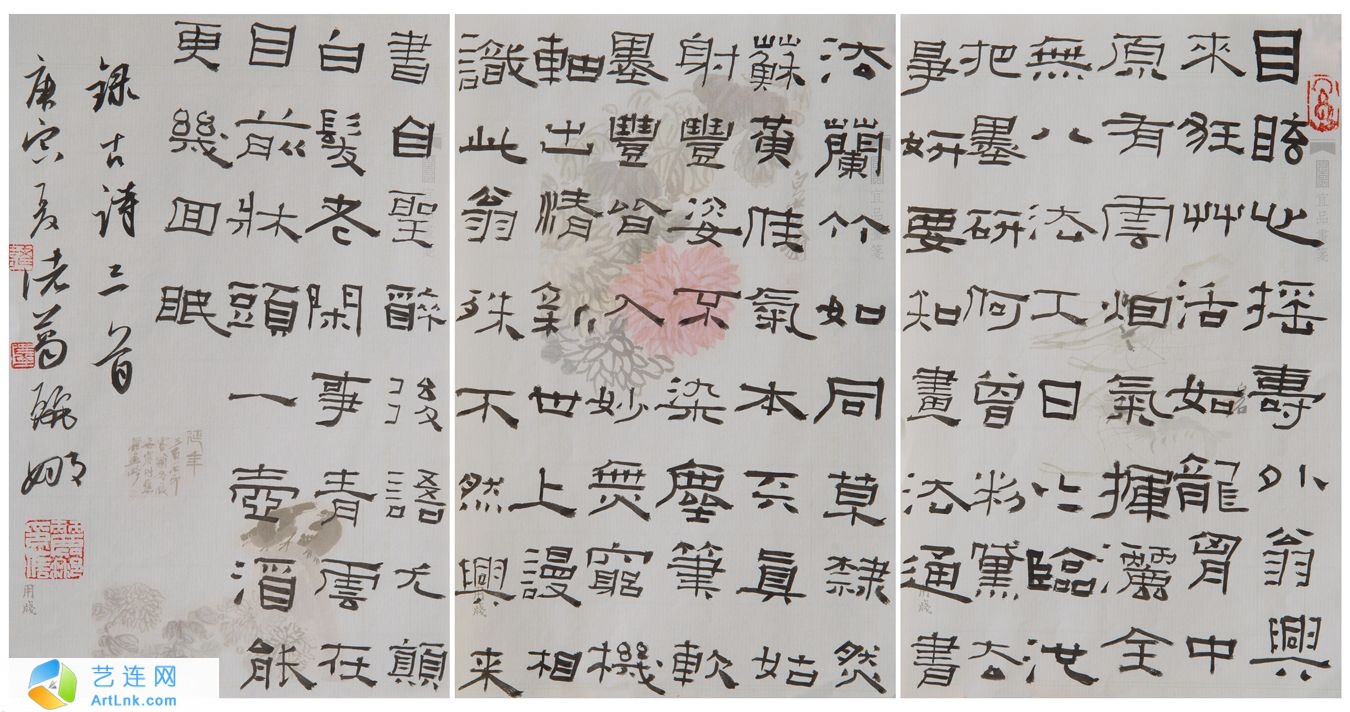 目眩心摇壽外翁興
來狂艸活如龍胷中
原有雲烟氣揮灑全
無八法工日日臨池
把墨研何曾粉黛去
爭妍要知畫法通書
法蘭竹如同草隸然
蘇黃佳氣本天真姑
射豐姿不染塵筆軟
墨豐皆入妙無窮機
軸出清新世上漫相
識此翁殊不然興来
書自聖醉後語尤顛
白髮老閑事青雲在
目前牀頭一壺酒能
更幾回眠
録古诗三首
庚寅夏诸葛麗娜
宜品書箋
宜品書箋
用牋
艺连网
ArtLnk.com